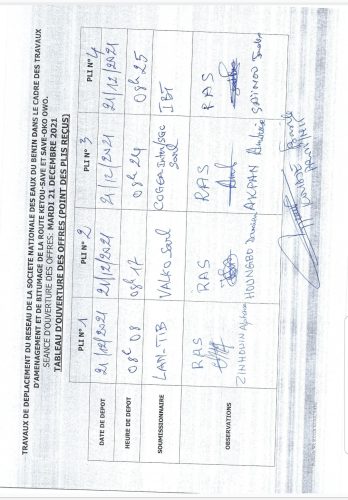 TRAVAUX DE DEPLACEMENT DU RESEAU DE LA SOCIETE NATIONALE DES EAUX DU BENIN DANS LE CADRE DES TRAVAUX
D'AMENAGEMENT ET DE BITUMAGE DE LA ROUTE KETOU-SAVE ET SAVE-OKO OWO.
SEANCE D'OUVERTURE DES OFFRES: MARDI 21 DECEMBRE 2021
TABLEAU D'OUVERTURE DES OFFRES (POINT DES PLIS REÇUS)
PLI N° 1 PLI N° 2 PLI N° 3 PLI N° 4
DATE DE DEPOT 21/12/2021 21/12/2021 21/12/2021 21/12/2021
HEURE DE DEPOT 08h 08 08h 17 08h 24 08h 25
SOUMISSIONNAIRE LAM-TIB VALKO Sarl COGEA Inter/SGC Sarl IBT
OBSERVATIONS RAS RAS RAS RAS
ZINHOUIN HOUNGBO AKPAN